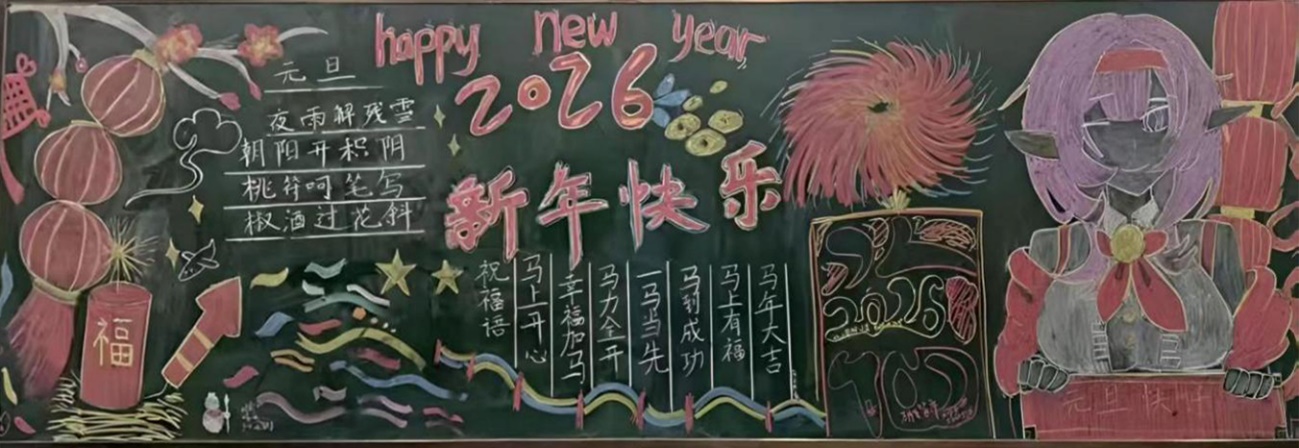 happy new year
2026
新年快乐
元旦
夜雨解残雪
朝阳开积阴
桃符呵笔写
椒酒过花斜
福
祝福语
马上开心
幸福加马
马力全开
一马当先
马到成功
马上有福
马年大吉
2026
元旦快乐